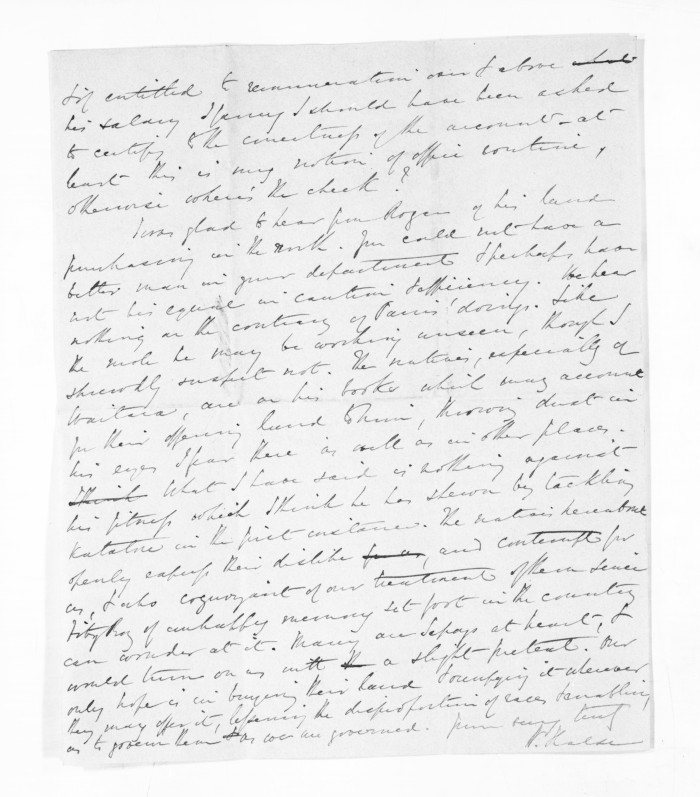 if entitled to remuneration over & above
his salary I fancy I should have been asked
to certify to the correctness of the account - at
least this is my notion of office routine,
otherwise where's the check?
I was glad to hear from Rogan of his land
purchasing in the North. You could not have a
better man in your department & perhaps have
not his equal in caution & efficiency. We hear
nothing on the contrary of Parris' doings. Like
the mole he may be working unseen, though I
shrewdly suspect not. The natives, especially of
Waitara, are on his books which may account
for their offering land to him, throwing dust in
his eyes I fear there as well as in other places.
I think What I have said is nothing against
his fitness which I think he has shewn by tackling
Katatore in the first instance. The natives hereabout
openly express their dislike for us, and contempt for
us, & who cognizant of our treatment of them since
FitzRoy of unhappy memory set foot in the country
can wonder at it. Many are Sepoys at heart, &
would turn on us with a slight pretext. Our
only hope is in buying their land & occupying it wherever
they may offer it, lessening the disproportion of races & enabling
us to govern them as we are governed. Yours very truly
W. Halse